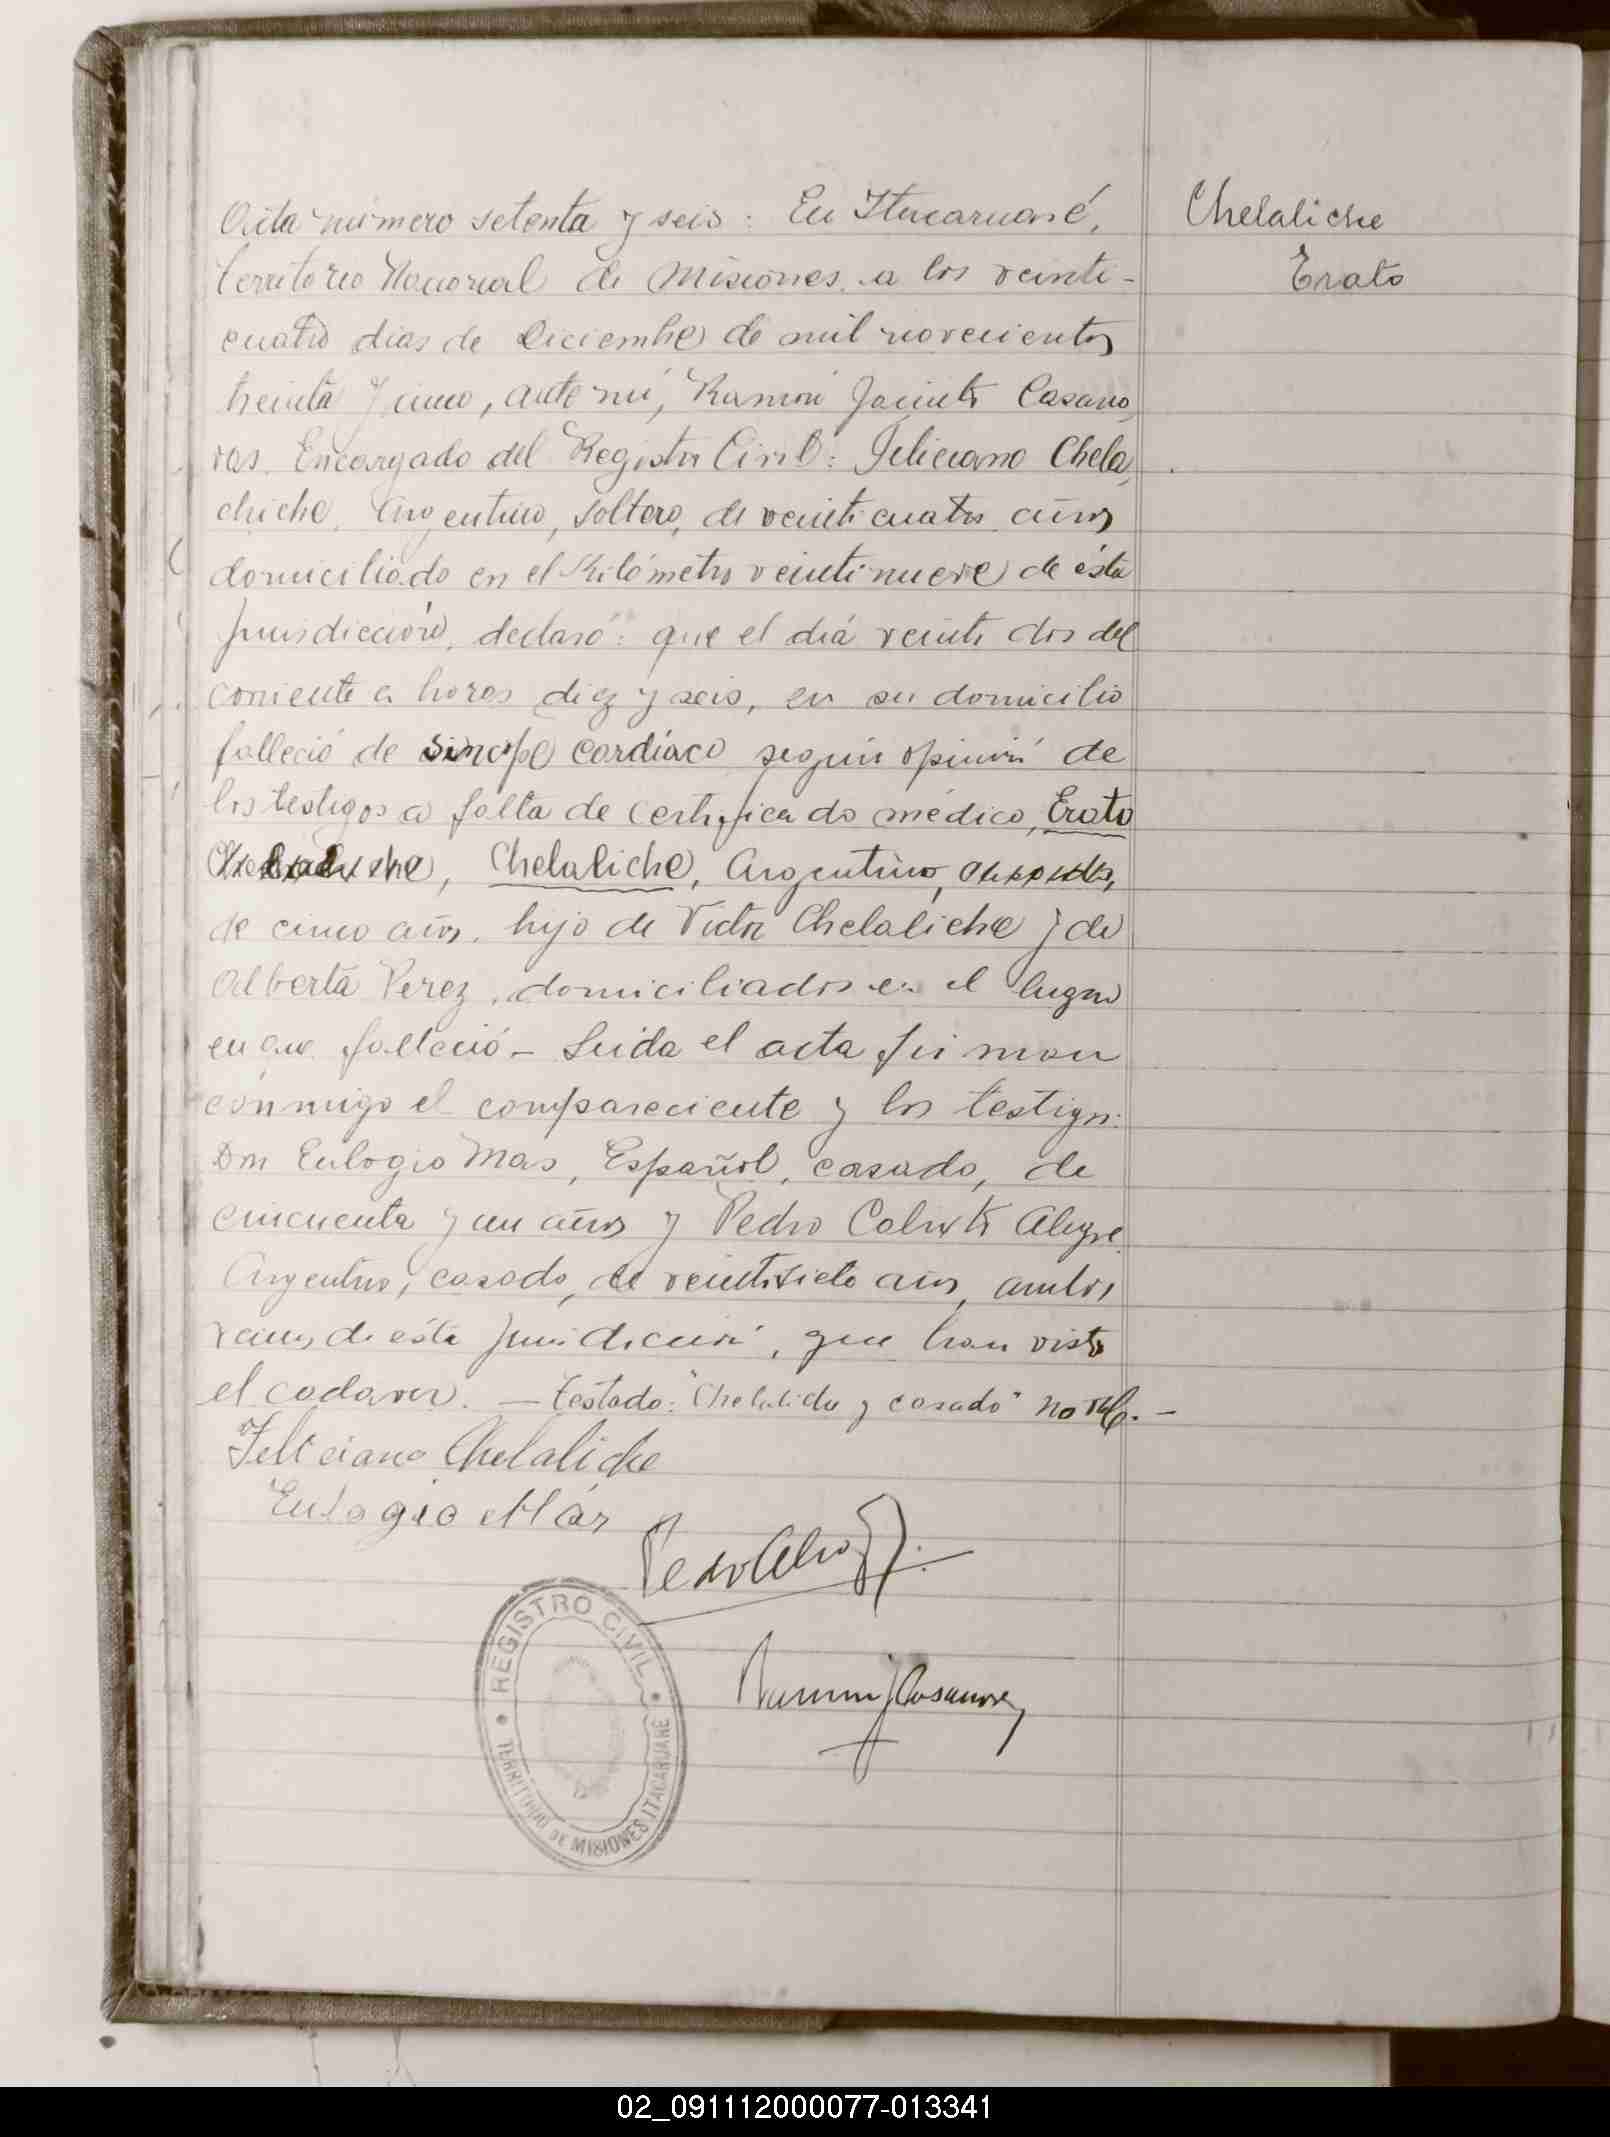 Acta número setenta y seis: En Itacaruaré,
Territorio Nacional de Misiones, a los veinti-
cuatro dias de Diciembre de mil novecientos
treinta y cinco, ante mí, Ramón Jacinto Casano
vas. Encargado del Registro Civil: Feliciano Chela
chiche, Argentino, soltero, de veinticuatro años
domiciliado en el Kilómetro veintinueve de ésta
jurisdicción, declaró: que el diá veinti dos del
corriente a horas diez y seis, en su domicilio
falleció de sincope cardíaco según opinión de
los testigos a falta de certificado médico, Erato
Chelaliche, Argentino,
de cinco años, hijo de Victor Chelaliche y de
Alberta Perez, domiciliados en el lugar
en que falleció - Leida el acta firman
conmigo el compareciente y los testigos:
Don Eulogio Mas, Español, casado, de
cincuenta y un años y Pedro Calixto Alegre
Argentino, casado, de veintisiete años, ambos
vecinos de ésta jurisdicción, que han visto
el cadaver. — Testado: "Chelaliche y casado" no vale. —
Feliciano Chelaliche
Eulogio Más
Pedro
Ramón J Casanovas
Chelaliche
Erato
REGISTRO CIVIL
TERRITORIO DE MISIONES ITACARUARÉ
02_091112000077-013341